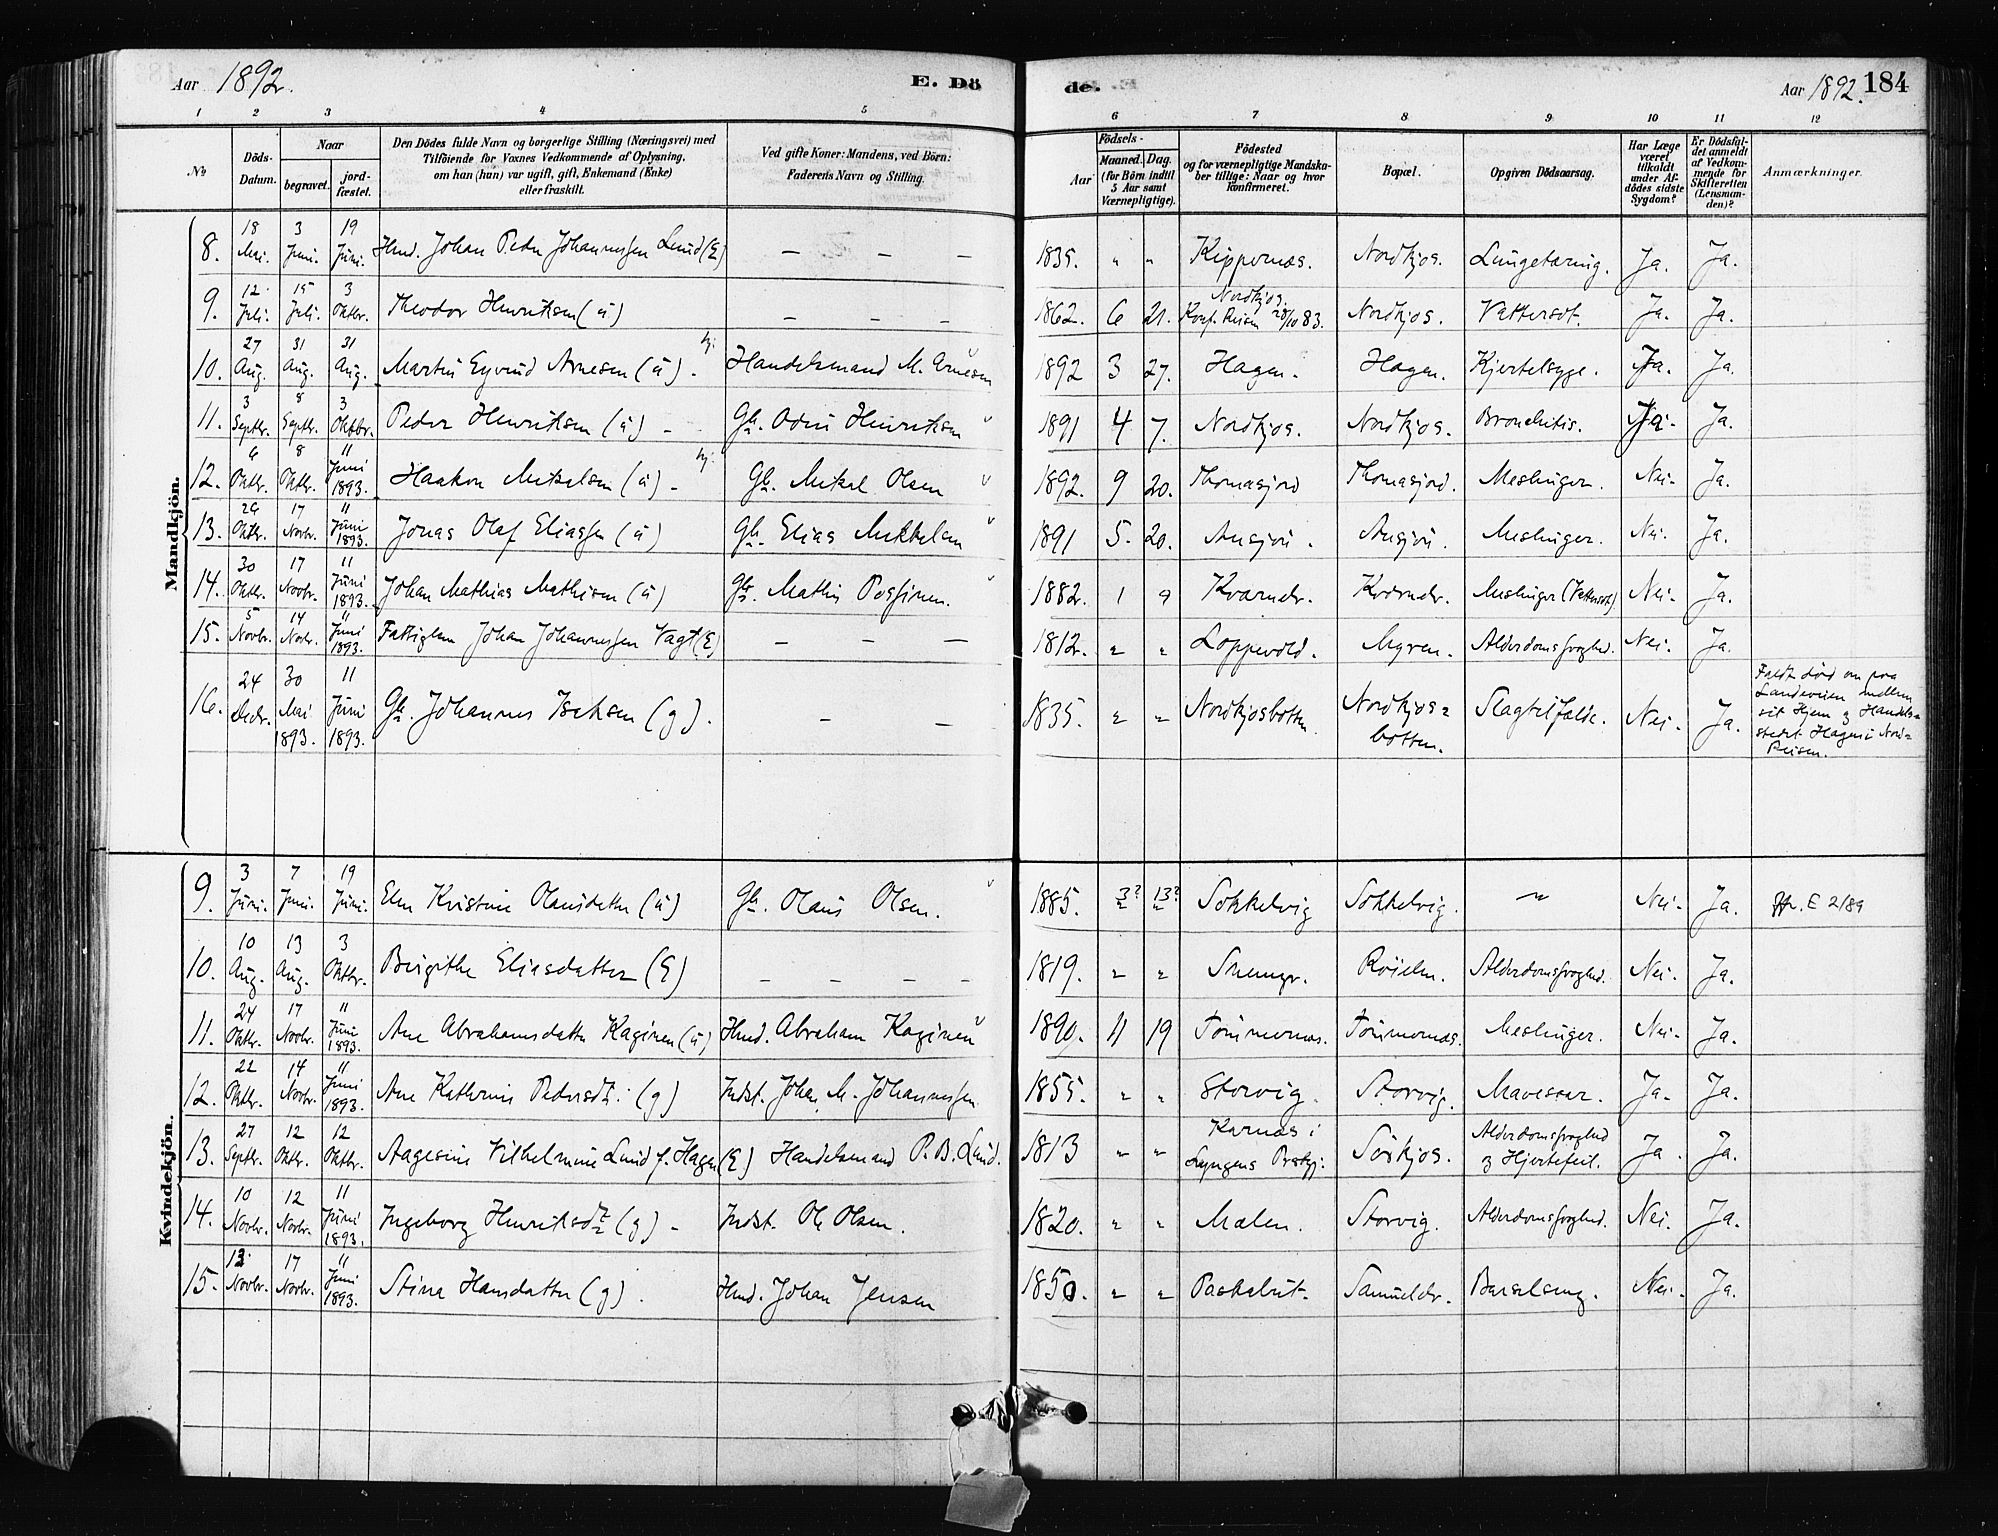 Aar 1892. E. Dö
de. Aar 1892. 184
1 2 3 4 5
6 7 8 9 10 11 12
No
Döds-Datum.
Naar
begravet.
jord-fæstet.
Den Dödes fulde Navn og borgerlige Stilling (Næringsvei) med
Tilföiende for Voxnes Vedkommende af Oplysning,
om han (hun) var ugift, gift, Enkemand (Enke)
eller fraskilt.
Ved gifte Koner: Mandens, ved Börn:
Faderens Navn og Stilling.
Födsels-
Aar
Maaned. Dag.
(for Börn indtil
5 Aar samt
Værnepligtige).
Födested
og for værnepligtige Mandska-
ber tillige: Naar og hvor
konfirmeret.
Bopæl.
Opgiven Dödsaarsag.
Har Læge
været
tilkaldt
under Af-
dödes sidste
Sygdom?
Er Dödsfal-
det anmeldt
af Vedkom-
mende for
Skifteretten
(Lensman-
den)?
Anmærkninger.
Mandkjön.
8. 18 Mai. 3 Juni. 19 Juni. Hmd. Johan Peder Johannessen Lund (E) — — — 1835. " " Kippernæs. Nordkjos. Lungetæring. Ja. Ja.
9. 12 Juli. 15 Juli. 3 Oktbr. Theodor Henriksen (u) — — — 1862. 6 21. Nordkjos. Konf. Reisen 28/10 83. Nordkjos. Vattersot. Ja. Ja.
10. 27 Aug. 31 Aug. 31 Aug. Martin Eyvind Arnesen (u). hj: Handelsmand M. Arnesen 1892 3 27. Hagen. Hagen. Kjertelsyge. Ja. Ja.
11. 3 Septbr. 8 Septbr. 3 Oktbr. Peder Henriksen (u) - Gbr. Odin Henriksen 1891 4 7. Nordkjos. Nordkjos. Bronchitis. Ja. Ja.
12. 6 Oktbr. 8 Oktbr. 11 Juni 1893. Haakon Mikalsen (u) - hj: Gbr. Mikal Olsen 1892. 9 20. Thomasjord Thomasjord. Meslinger. Nei. Ja.
13. Oktbr. 17 Novbr. 11 Juni 1893. Jonas Olaf Eliassen (u) Gbr. Elias Mikkelsen 1891 5. 20. Meslinger. Nei. Ja.
14. 30 Oktbr. 17 Novbr. 11 Juni 1893. Johan Mathias Mathisen (u) Gbr. Mathis 1882. 1 9 Kværnelv. Kværnelv. Meslinger (Vattersot) Nei. Ja.
15. 5 Novbr. 14 Novbr. 11 Juni 1893. Fattiglem Johan Johannessen Vagt (E) — — — 1812. " " Loppevold. Myren. Alderdomssvaghed. Nei. Ja.
16. 24 Decbr. 30 Mai 1893. 11 Juni 1893. Gbr. Johannes Isaksen (g). — — 1835. " " Nordkjosbotten Nordkjos=botten. Slagtilfælde. Nei. Ja.
Faldt død om paa
Landeveien mellem
sit Hjem og Handels=
stedet Hagen i Nord=
Reisen.
Kvindekjön.
9. 3 Juni. 7 Juni. 19 Juni. Elen Kristine Olausdatter (u) Gbr. Olaus Olsen. 1885. 3? 13? Sokkelvig Sokkelvig. " Nei. Ja. E 2/89
10. 10 Aug. 13 Aug. 3 Oktbr. Birgithe Eliasdatter (E) — — — — 1819. " " Røielen. Alderdomssvaghed. Nei. Ja.
11. 24 Oktbr. 17 Novbr. 11 Juni 1893. Ane Abrahamsdatter Kaginen (u) Hmd. Abraham Kaginen 1890. 11 19 Tømmernæs. Tømmernæs. Meslinger. Nei. Ja.
12. 22 Oktbr. 14 Novbr. 11 Juni 1893. Ane Kathrine Pedersdt: (g) Indst. Johan M. Johannessen 1855. " " Storvig. Storvig. Mavesaar. Ja. Ja.
13. 27 Septbr. 12 Oktbr. 12 Oktbr. Aagesine Vilhelmine Lund f. Hagen (E) Handelsmand P. B. Lund. 1813 " " Karnæs i Lyngens Prstgj: Sørkjos. Alderdomssvaghed og Hjertefeil. Ja. Ja.
14. 10 Novbr. 12 Novbr. 11 Juni 1893. Ingeborg Henriksdtr (g) - Indst. Ole Olsen. 1820. " " Mælen. Storvig. Alderdomssvaghed. Nei. Ja.
15. 13 Novbr. 17 Novbr. 11 Juni 1893. Stina Hansdatter (g). Hmd. Johan Jensen 1850. " " Samuelelv. Barselseng. Nei. Ja.